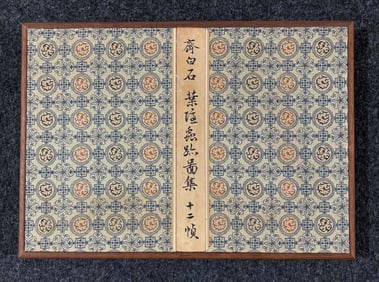 齊白石 葉隱蟲跡畵集 十二幀